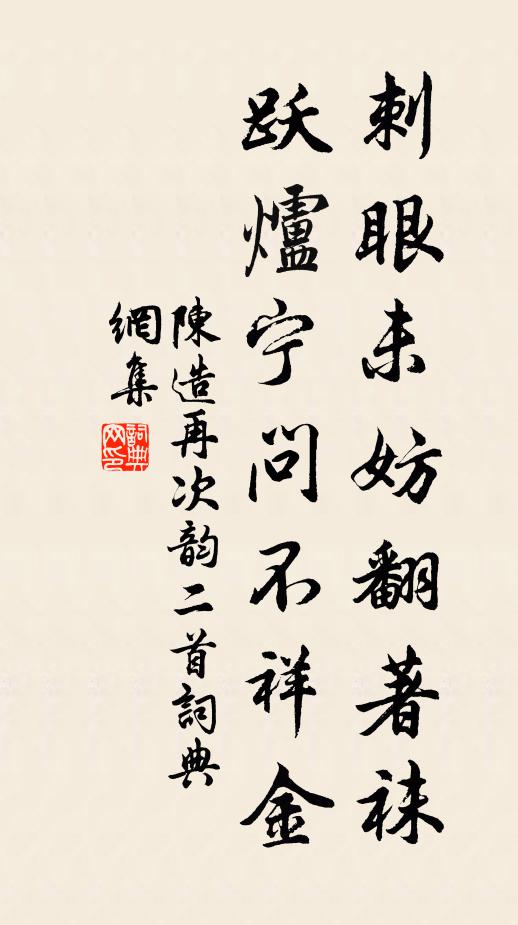 刺眼未妨翻著袜
跃爐宁问不祥金
陳造再次韵二首詞典
網集
詞典網印